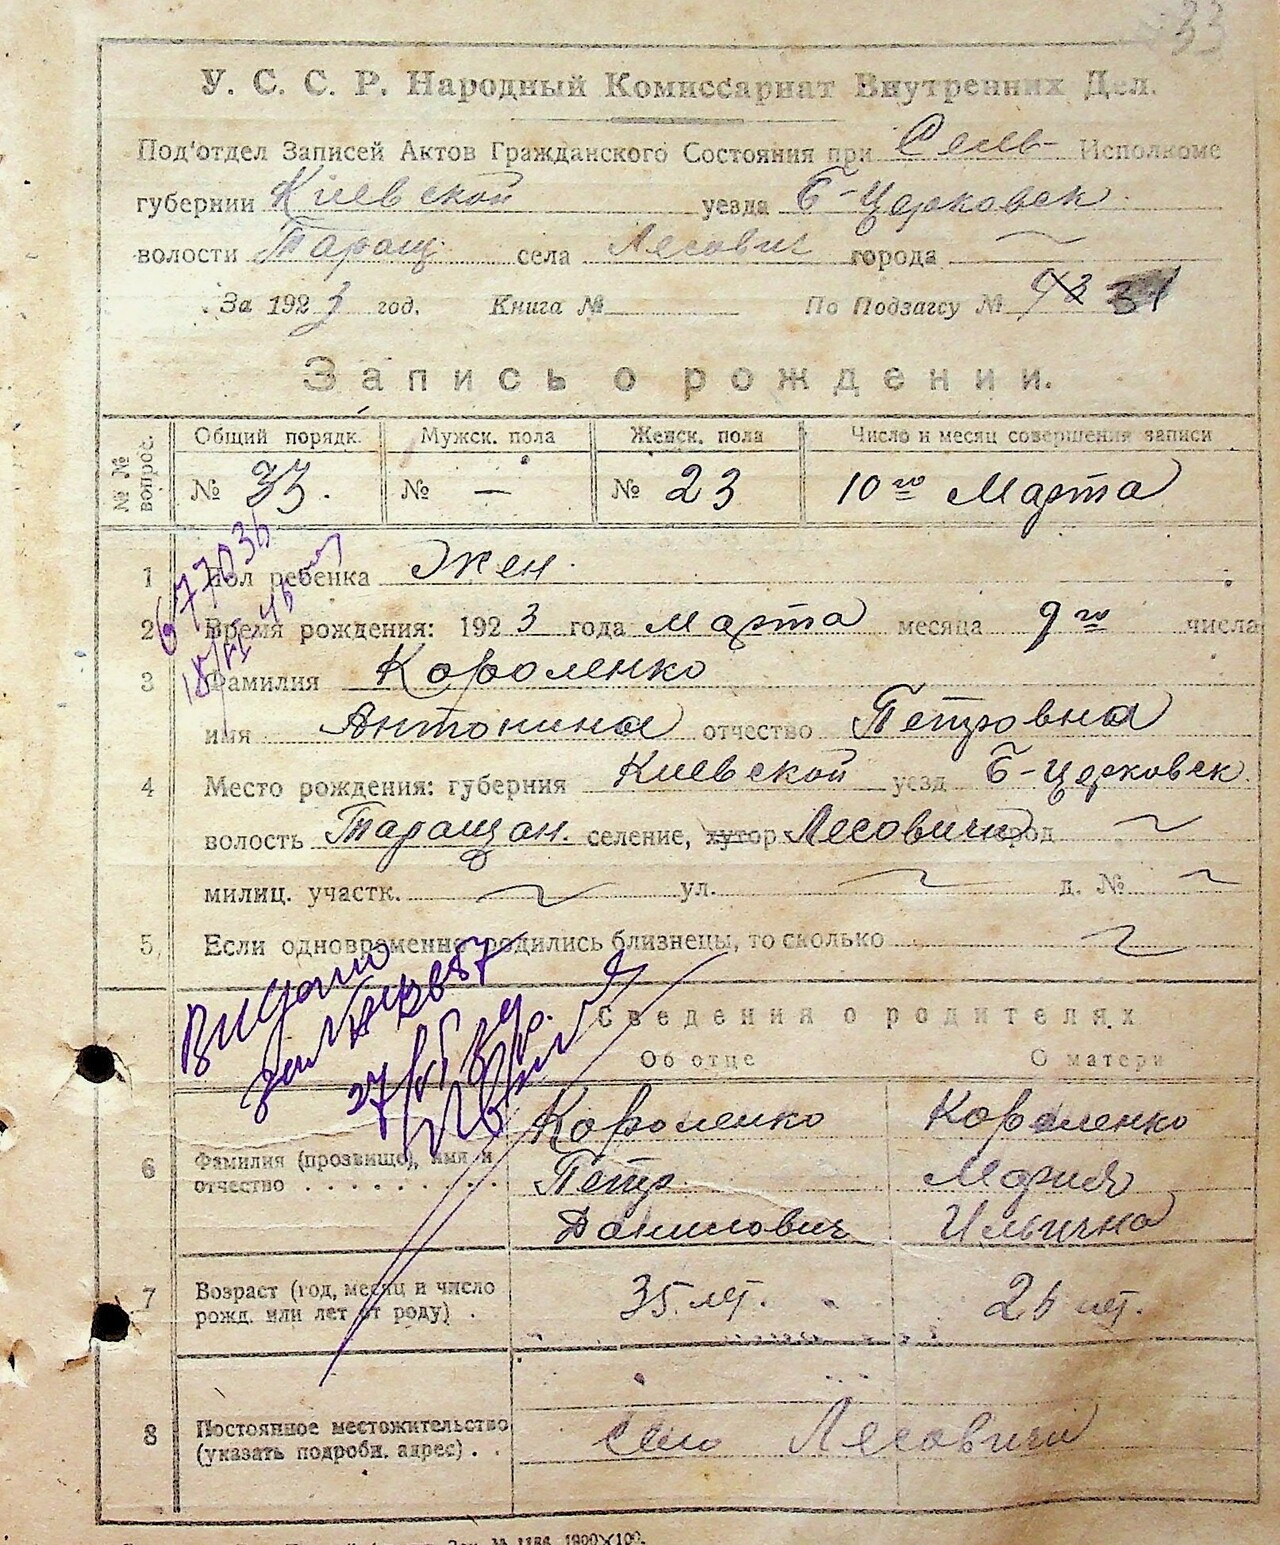 33
У. С. С. Р. Народный Комиссариат Внутренних Дел.
Под'отдел Записей Актов Гражданского Состояния при Сель- Исполкоме
губернии Киевской уезда Б-Церковск.
волости Таращ. села Лесович города
За 1923 год. Книга № По Подзагсу № 31
Запись о рождении.
№ № вопрос. Общий порядк. Мужск. пола Женск. пола Число и месяц совершения записи
№ 33. № — № 23 10го Марта
1 Пол ребенка Жен.
2 Время рождения: 1923 года марта месяца 9го числа
3 Фамилия Короленко
имя Антонина отчество Петровна
4 Место рождения: губерния Киевской уезд Б-Церковск.
волость Таращан. селение, хутор Лесовичи город
милиц. участк. ул. д. №
5. Если одновременно родились близнецы, то сколько
Видано
Сведения о родителях
Об отце О матери
Короленко Короленко
6 Фамилия (прозвище), имя и
отчество . . . . . . . . . Петр Мария
Данилович Ильична
7 Возраст (год, месяц и число
рожд. или лет от роду) . 35 лет. 26 лет.
8 Постоянное местожительство
(указать подробн. адрес) . . село Лесовичи
№ 1186 1900×100.